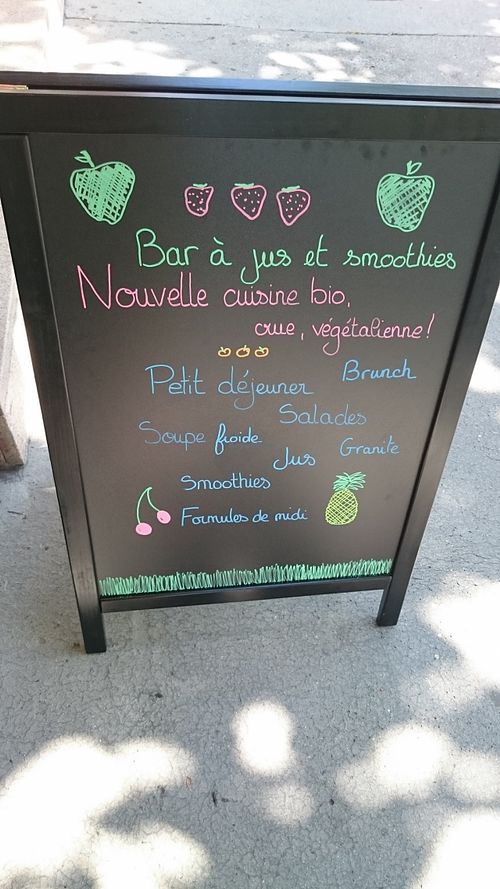 Bar à jus et smoothies
Nouvelle cuisine bio,
crue, végétalienne!
Brunch
Petit déjeuner
Salades
Soupe froide
Granite
Jus
Smoothies
Formules de midi